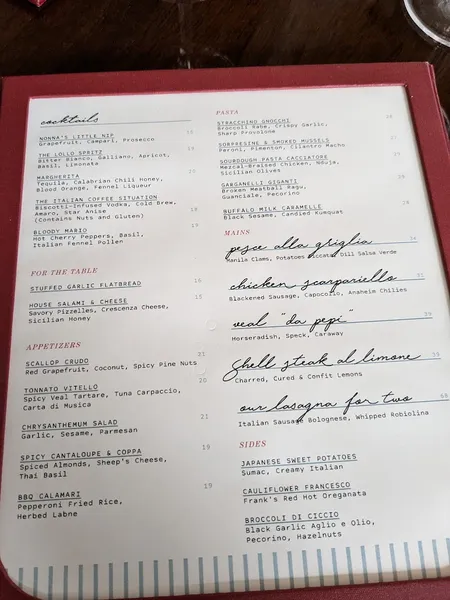 cocktails
NONNA'S LITTLE NIP
Grapefruit, Campari, Prosecco
THE LOLLO SPRITZ
Bitter Bianco, Galliano, Apricot,
Basil, Limonata
MARGHERITA
Tequila, Calabrian Chili Honey,
Blood Orange, Fennel Liqueur
THE ITALIAN COFFEE SITUATION
Biscotti-Infused Vodka, Cold Brew,
Amaro, Star Anise
(Contains Nuts and Gluten)
BLOODY MARIO
Hot Cherry Peppers, Basil,
Italian Fennel Pollen
FOR THE TABLE
STUFFED GARLIC FLATBREAD 16
HOUSE SALAMI & CHEESE 15
Savory Pizzelles, Crescenza Cheese,
Sicilian Honey
APPETIZERS
SCALLOP CRUDO 21
Red Grapefruit, Coconut, Spicy Pine Nuts
TONNATO VITELLO 20
Spicy Veal Tartare, Tuna Carpaccio,
Carta di Musica
CHRYSANTHEMUM SALAD 21
Garlic, Sesame, Parmesan
SPICY CANTALOUPE & COPPA 19
Spiced Almonds, Sheep's Cheese,
Thai Basil
BBQ CALAMARI 19
Pepperoni Fried Rice,
Herbed Labne
PASTA
STRACCHINO GNOCCHI
Broccoli Rabe, Crispy Garlic,
Sharp Provolone
SORPRESINE & SMOKED MUSSELS
Peroni, Pimenton, Cilantro Macho
SOURDOUGH PASTA CACCIATORE
Mezcal-Braised Chicken, Nduja,
Sicilian Olives
GARGANELLI GIGANTI
Broken Meatball Ragu,
Guanciale, Pecorino
BUFFALO MILK CARAMELLE
Black Sesame, Candied Kumquat
MAINS
pesce alla griglia
Manila Clams, Potatoes Piccante, Dill Salsa Verde
chicken scarpariello 31
Blackened Sausage, Capocollo, Anaheim Chilies
veal "da pepi" 39
Horseradish, Speck, Caraway
Shell steak al limone
Charred, Cured & Confit Lemons
our lasagna for two 68
Italian Sausage Bolognese, Whipped Robiolina
SIDES
JAPANESE SWEET POTATOES
Sumac, Creamy Italian
CAULIFLOWER FRANCESCO
Frank's Red Hot Oreganata
BROCCOLI DI CICCIO
Black Garlic Aglio e Olio,
Pecorino, Hazelnuts